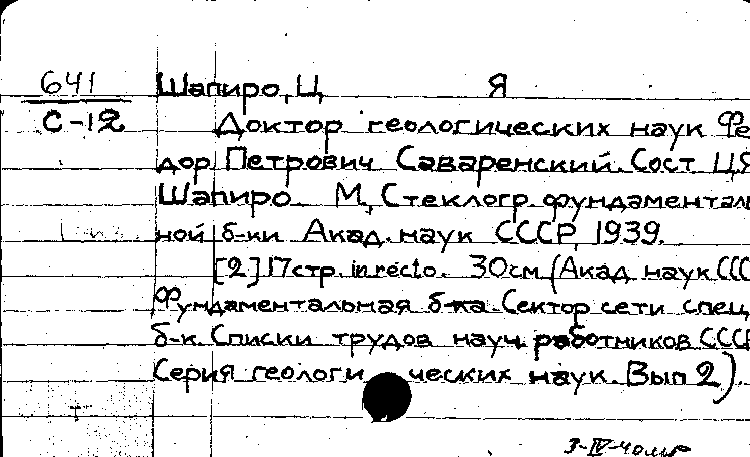 641 Шапиро, Ц Я
С-12 Доктор геологических наук Фе
дор Петрович Саваренский. Сост Ц.Я
Шапиро. М., Стеклогр. фундаменталь
ной б-ки Акад. наук СССР, 1939.
[2] 17 стр. in recto. 30 см (Акад наук ССС
Фундаментальная б-ка. Сектор сети спец.
б-к. Списки трудов науч. работников СССР
Серия геологических наук. Вып 2).
3-IV-40